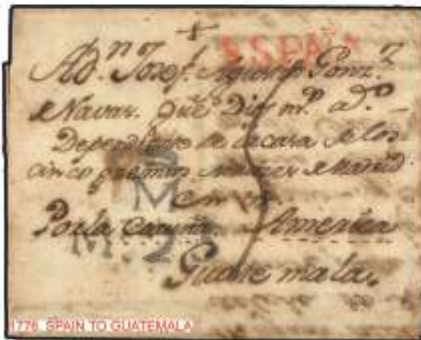 ESPAÑA
Ad.ⁿ Josef. Agustin Gonz.ᶻ
de Navar. que Dios m.ˢ a.ˢ
Dependiente de la casa de los
cinco gremios Mayores de Madrid
en
M
Por la Coruña. America
M. 2
Guatemala.
1776 SPAIN TO GUATEMALA